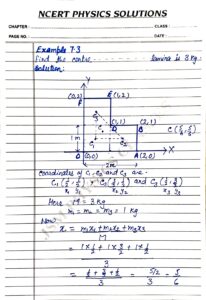 NCERT PHYSICS SOLUTIONS
CHAPTER
CLASS :
PAGE NO. :
DATE :
Example 7.3
Find the centre lamina is 3 kg.
Solution:
Y
(0,2) E (1,2)
C3
D (1,1) (2,1) B
1m
C1 C2
O (0,0) A (2,0) X
2m
coordinates of C1, C2 and C3 are
C1 (1/2, 1/2) C2 (3/2, 1/2) and C3 (1/2, 3/2)
x1 y1 x2 y2 x3 y3
Here M = 3 kg
m1 = m2 = m3 = 1 kg
Now
x = m1x1 + m2x2 + m3x3
M
= 1×1/2 + 1×3/2 + 1×1/2
3
= 1/2 + 3/2 + 1/2 = 5/2 = 5
3 3 6